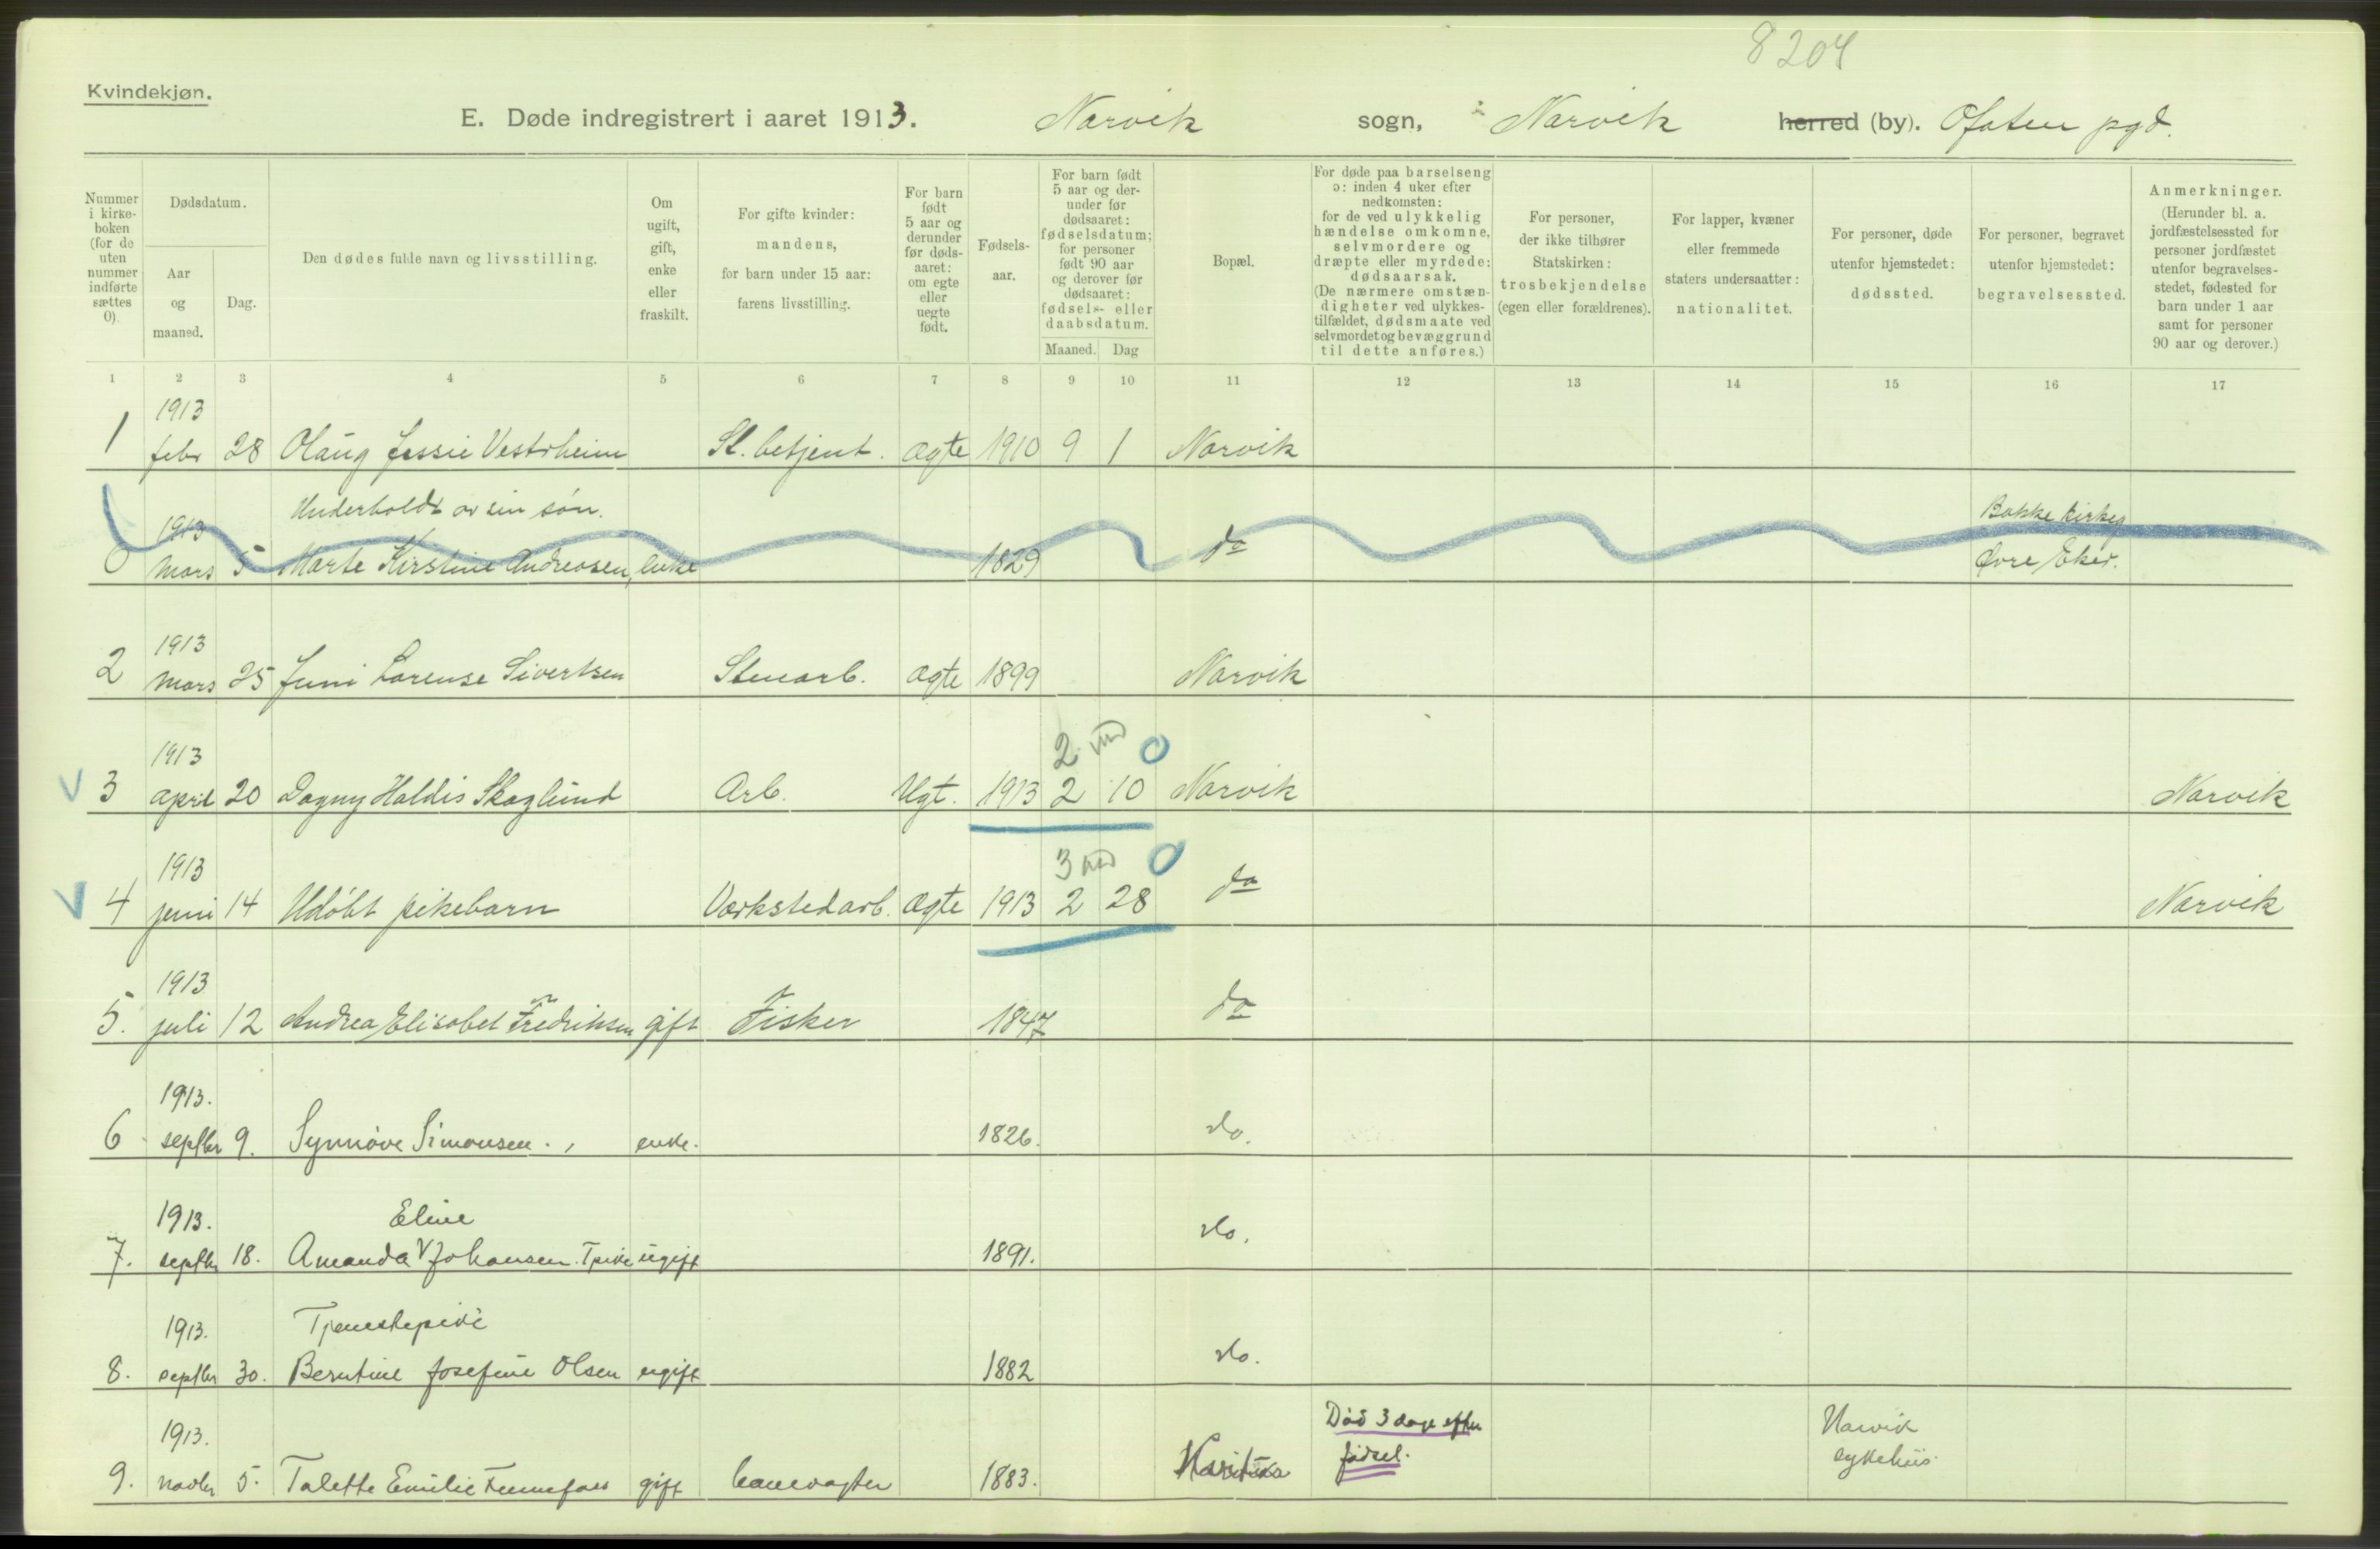 8204
Kvindekjøn.
E. Døde indregistrert i aaret 1913. Narvik sogn, Narvik herred (by). Ofoten pgd.
Nummer i kirke-boken (for de uten nummer indførte sættes 0).
Dødsdatum.
Aar og maaned.
Dag.
Den dødes fulde navn og livsstilling.
Om ugift, gift, enke eller fraskilt.
For gifte kvinder: mandens, for barn under 15 aar: farens livsstilling.
For barn født 5 aar og derunder før døds-aaret: om egte eller uegte født.
Fødsels-aar.
For barn født 5 aar og der-under før dødsaaret: fødselsdatum; for personer født 90 aar og derover før dødsaaret: fødsels- eller daabsdatum.
Maaned. Dag
Bopæl.
For døde paa barselseng ɔ: inden 4 uker efter nedkomsten: for de ved ulykkelig hændelse omkomne, selvmordere og dræpte eller myrdede: dødsaarsak. (De nærmere omstæn-digheter ved ulykkes-tilfældet, dødsmaate ved selvmordet og bevæggrund til dette anføres.)
For personer, der ikke tilhører Statskirken: trosbekjendelse (egen eller forældrenes).
For lapper, kvæner eller fremmede staters undersaatter: nationalitet.
For personer, døde utenfor hjemstedet: dødssted.
For personer, begravet utenfor hjemstedet: begravelsessted.
Anmerkninger. (Herunder bl. a. jordfæstelsessted for personer jordfæstet utenfor begravelses-stedet, fødested for barn under 1 aar samt for personer 90 aar og derover.)
1 2 3 4 5 6 7 8 9 10 11 12 13 14 15 16 17
1913
1 febr 28 Olaug Jessie Vestrheim St. betjent. Ægte 1910 9 1 Narvik
Underholdt av sin søn. Bakke kirkeg
1913
0 Mars 5 Marte Kirstine Andreasen, enke 1829 do Øvre Eker.
1913
2 Mars 25 Juni Lorense Sivertsen Stenarb. Ægte 1899 Narvik
1913 2 md 0
V 3 april 20 Dagny Haldis Skoglund Arb. Ugt. 1913 2 10 Narvik Narvik
1913 3 md 0
V 4 juni 14 Udøbt pikebarn Værkstedarb. Ægte 1913 2 28 do Narvik
1913
5. juli 12 Andrea Elisabet Fredriksen gift Fisker 1847 do
1913.
6 septbr 9. Synnøve Simonsen., enke. 1826. do.
1913. Eline
7. septbr 18. Amanda V Johansen. Tpike ugift 1891. do.
1913. Tjenestepike
8. septbr 30. Berntine Josefine Olsen ugift 1882 do.
1913. Død 3 dage efter Narvik
9. novbr 5. Talette Emilie gift banevogter 1883. fødsel. sykehus.